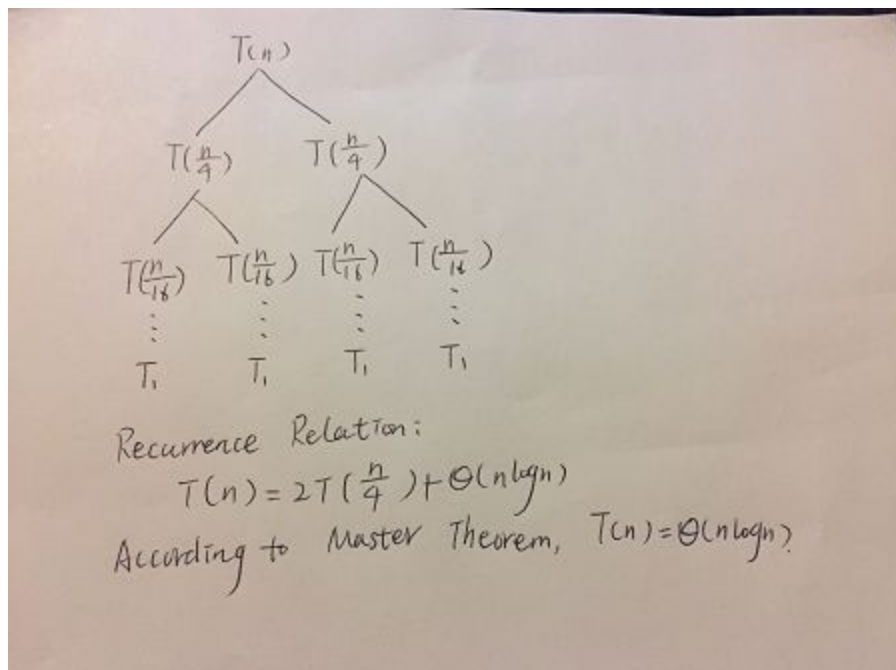 T(n)
T(n/4) T(n/4)
T(n/16) T(n/16) T(n/16) T(n/16)
T₁ T₁ T₁ T₁
Recurrence Relation:
T(n) = 2T(n/4) + Θ(nlogn)
According to Master Theorem, T(n) = Θ(nlogn).